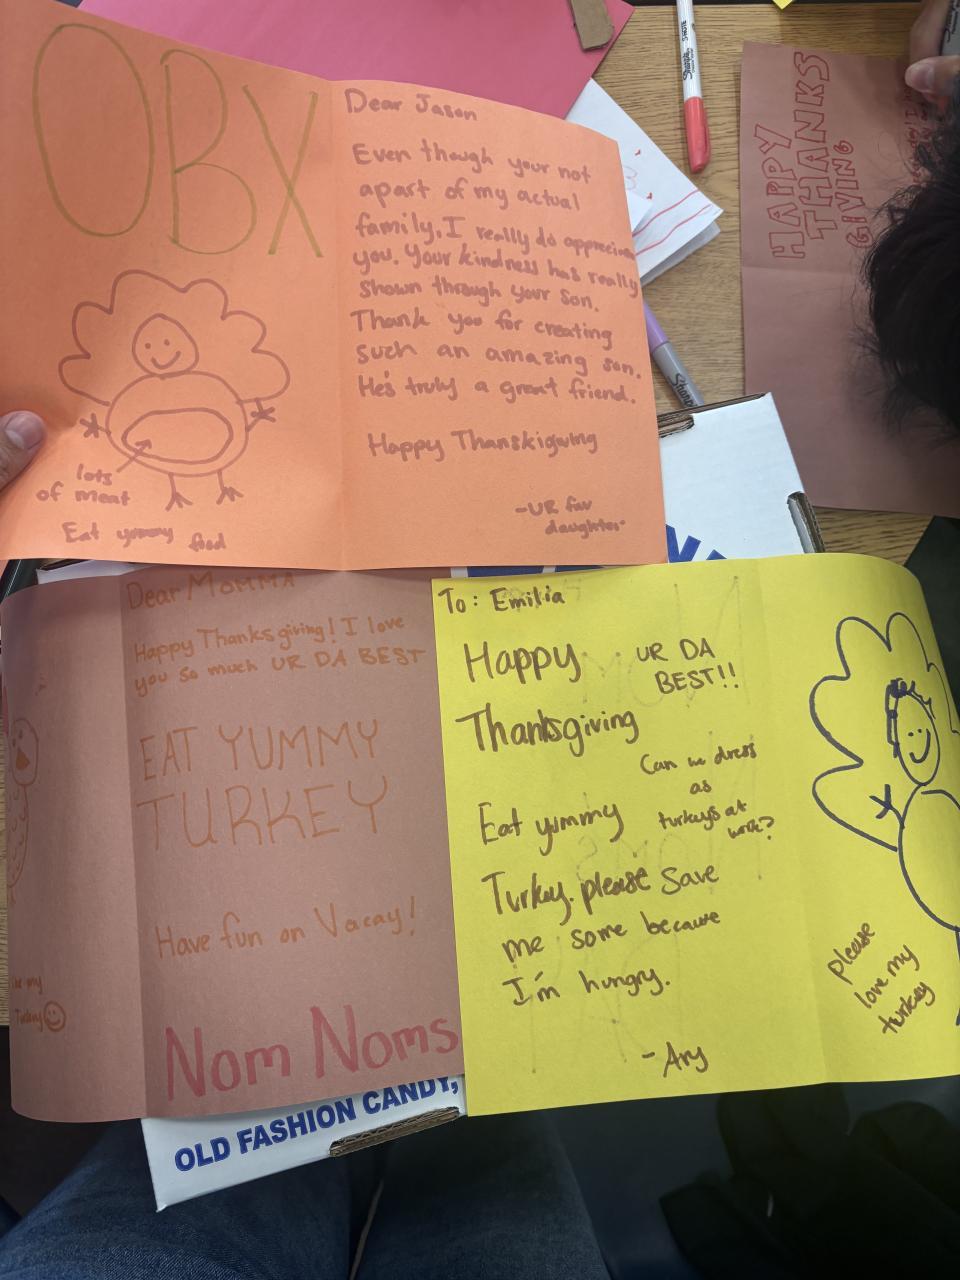 OBX
lots
of meat
Eat yummy food
Dear Jason
Even though your not
apart of my actual
family, I really do
you. Your kindness has really
shown through your son.
Thank you for creating
such an amazing son.
He's truly a great friend.
Happy Thanskigiving
-UR fav
daughter
HAPPY
THANKS
GIVING
Sharpie
Dear MOMMA
Happy Thanksgiving! I love
you so much UR DA BEST
EAT YUMMY
TURKEY
Have fun on Vacay!
Nom Noms
my
Turkey
To: Emilia
Happy
Thanksgiving
Eat yummy
Turkey. please save
me some because
I'm hungry.
-Ary
UR DA
BEST!!
Can we dress
as
turkeys at
work?
please
love my
turkey
OLD FASHION CANDY,